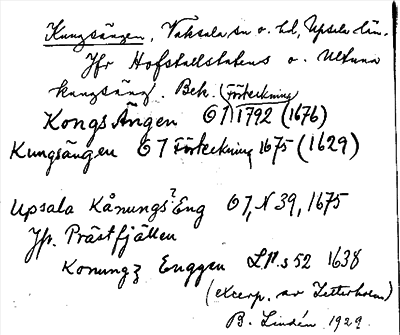 Kungsängen, Vaksala sn o. hd, Upsala län.
Jfr Hofstallstatens o. Ultuna
kungsäng. Bek. (Förteckning
Kongs Ängen O7 1792 (1676)
Kungsängen O7 Förteckning 1675 (1629)
Upsala Kånungs? Eng O7, N 39, 1675
Jfr. Prästfjällen
Konungz Enggen L.P. s 52 1638
(excerp. av Zetterholm)
B. Lindén 1929.